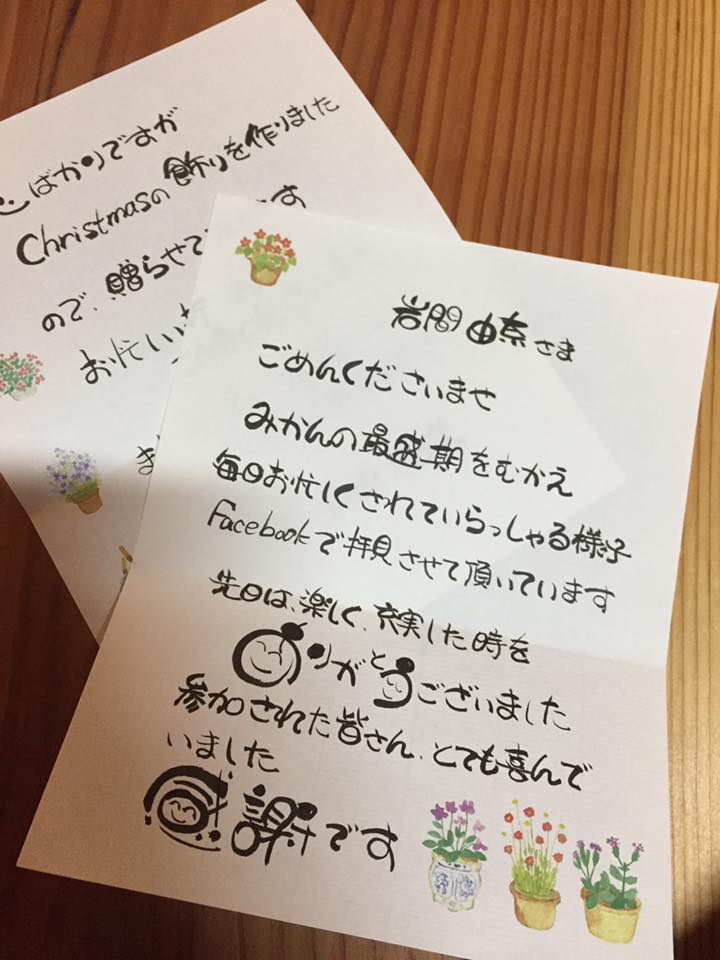 岩間 由奈さま
ごめんくださいませ
みかんの最盛期をむかえ
毎日お忙しくされていらっしゃる様子
Facebookで拝見させて頂いています
先日は、楽しく、充実した時を
ありがとうございました
参加された皆さん、とても喜んで
いました
感謝です
心ばかりですが
Christmasの飾りを作りました
ので、贈らせて
お忙しい